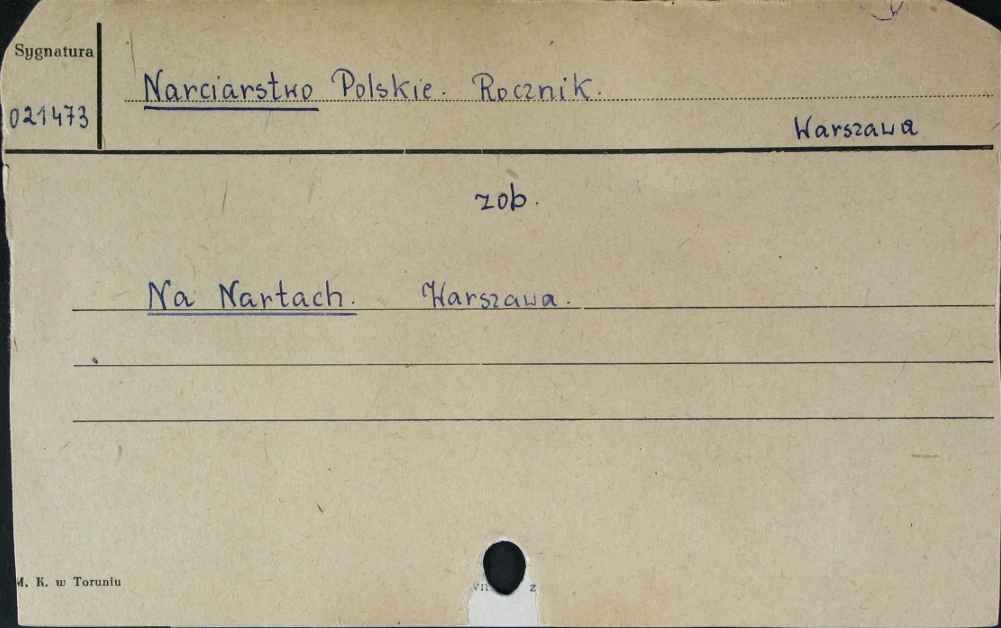 Sygnatura
Narciarstwo Polskie. Rocznik.
021473
Warszawa
zob.
Na Nartach. Warszawa.
M. K. w Toruniu
z